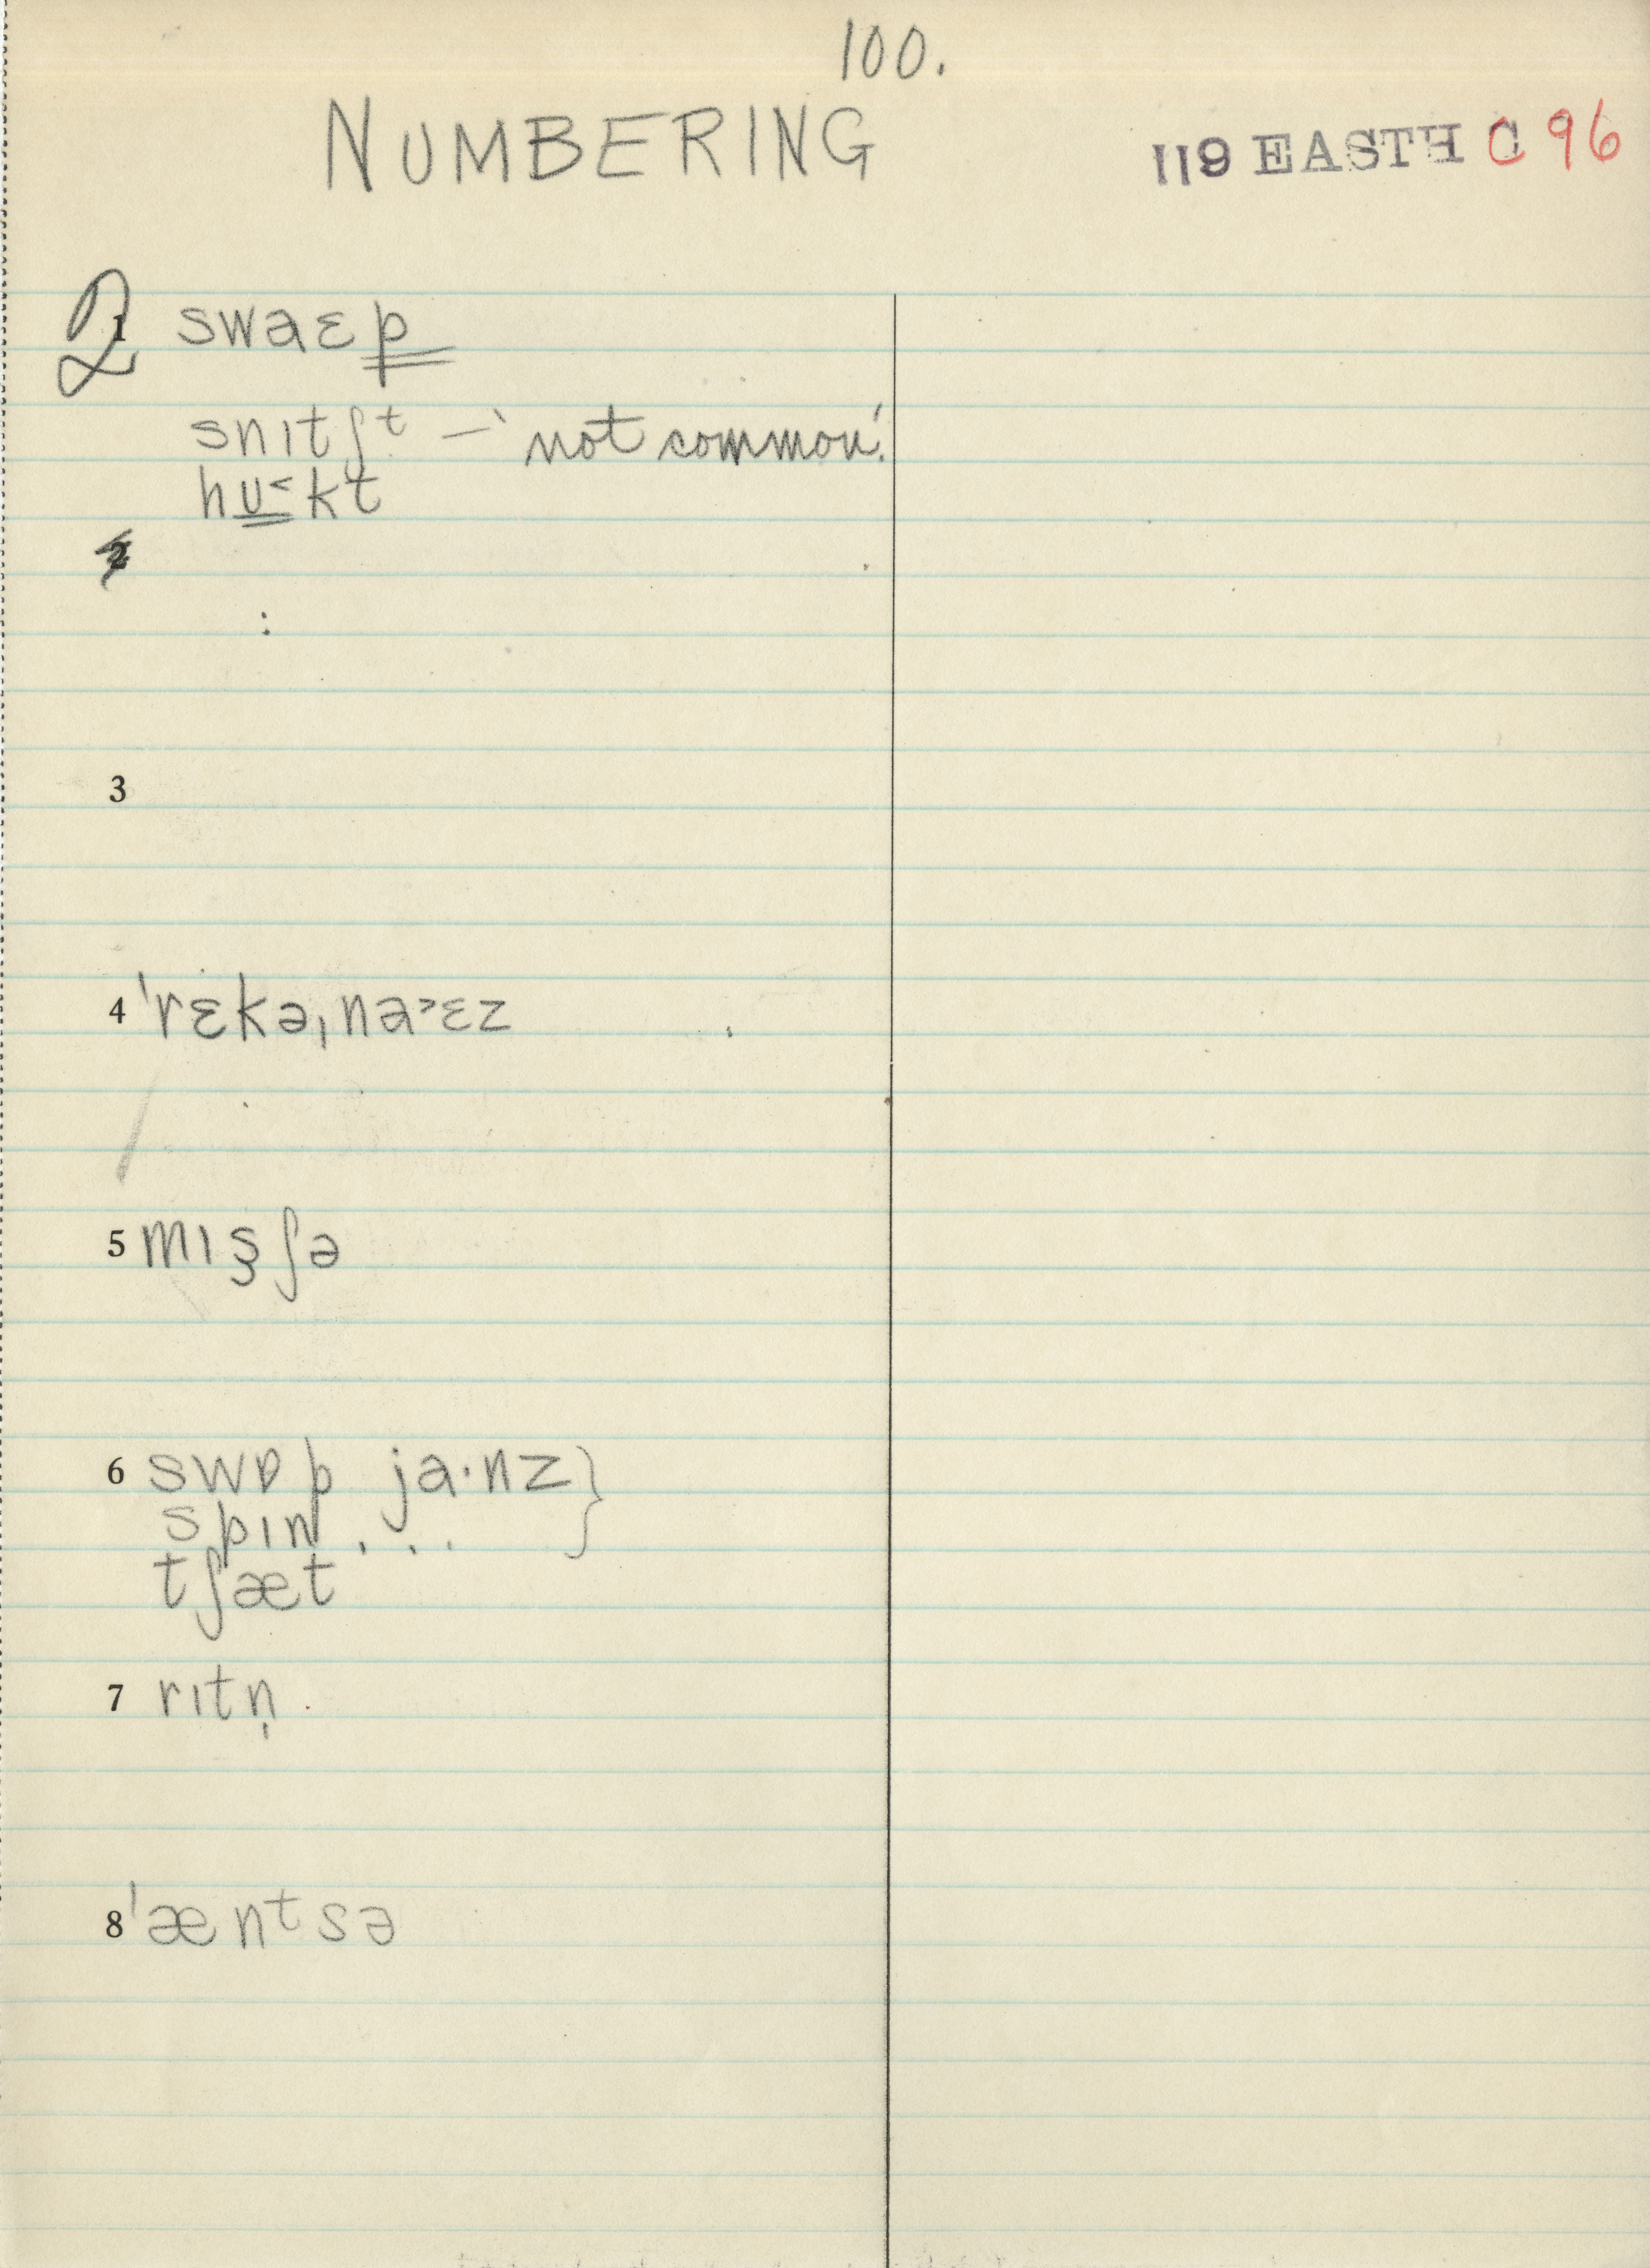 100.
NUMBERING
119 EASTH C 96
2 1 swaɛp
snɪtʃᵗ — 'not common'.
hʊ˂kt
2
3
4 ˈrɛkəˌna˃ɛz
5 mɪs̬ʃə
6 swɒp ja·nz }
spɪn . . .
tʃæt
7 rɪtn̩
8 ˈænᵗsə